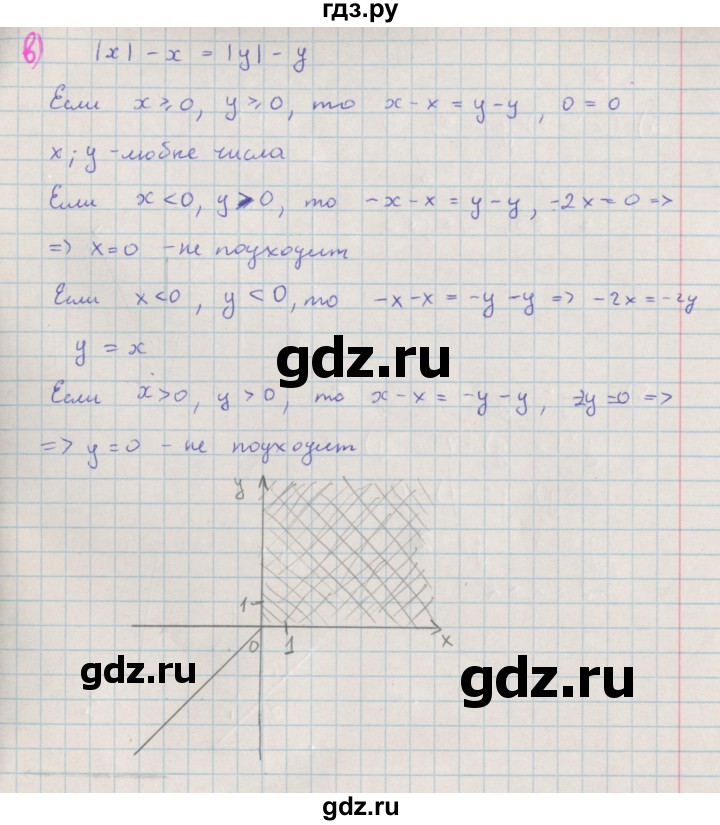 гдз.ру
в) |x| - x = |y| - y
Если x ≥ 0, y ≥ 0, то x - x = y - y, 0 = 0
x; y - любые числа
Если x < 0, y > 0, то -x - x = y - y, -2x = 0 =>
=> x = 0 - не подходит
Если x < 0, y < 0, то -x - x = -y - y => -2x = -2y
y = x
gdz.ru
Если x > 0, y > 0, то x - x = -y - y, -2y = 0 =>
=> y = 0 - не подходит
y
1
0 1 x
gdz.ru
gdz.ru
gdz.ru